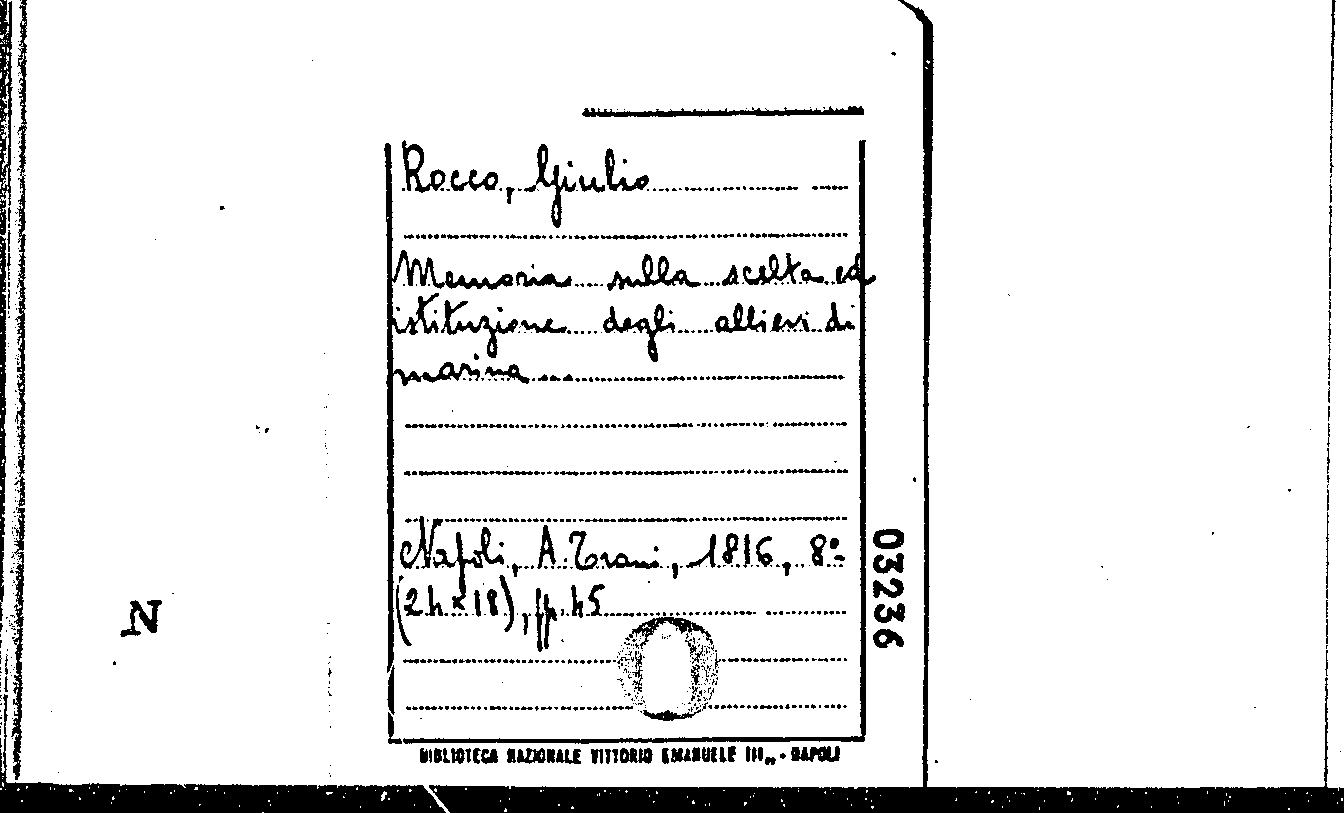 Rocco, Giulio
Memoria sulla scelta ed
istituzione degli allievi di
marina...
Napoli, A. Trani, 1816, 8º
(24×18), pp. 45
03236
N
BIBLIOTECA NAZIONALE VITTORIO EMANUELE III„ - NAPOLI